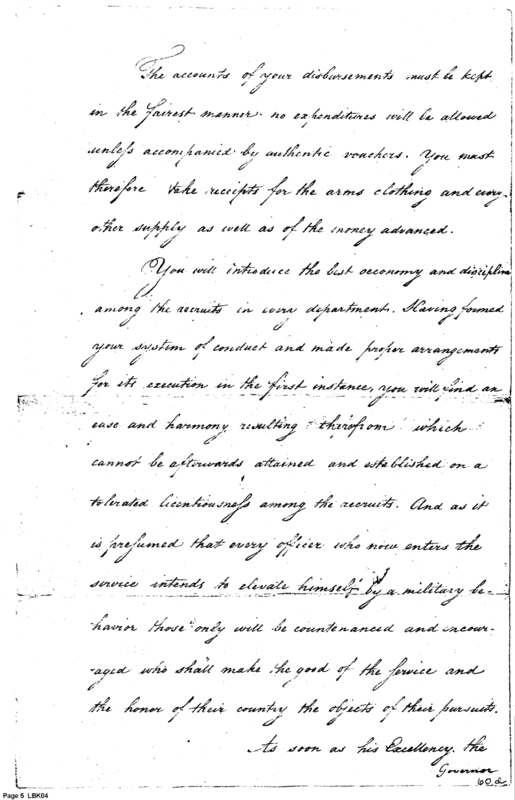 The accounts of your disbursements must be kept
in the fairest manner. no expenditures will be allowed
unless accompanied by authentic vouchers. You must
therefore take receipts for the arms clothing and every
other supply as well as of the money advanced.
You will introduce the best oeconomy and discipline
among the recruits in every department. Having formed
your system of conduct and made proper arrangements
for its execution in the first instance, you will find an
ease and harmony resulting therefrom which
cannot be afterwards attained and established on a
tolerated licentiousness among the recruits. And as it
is presumed that every officer who now enters the
service intends to elevate himself by a military be-
havior those only will be countenanced and encour-
-aged who shall make the good of the service and
the honor of their country the objects of their pursuits.
As soon as his Excellency the
Governor
Page 5 LBK04